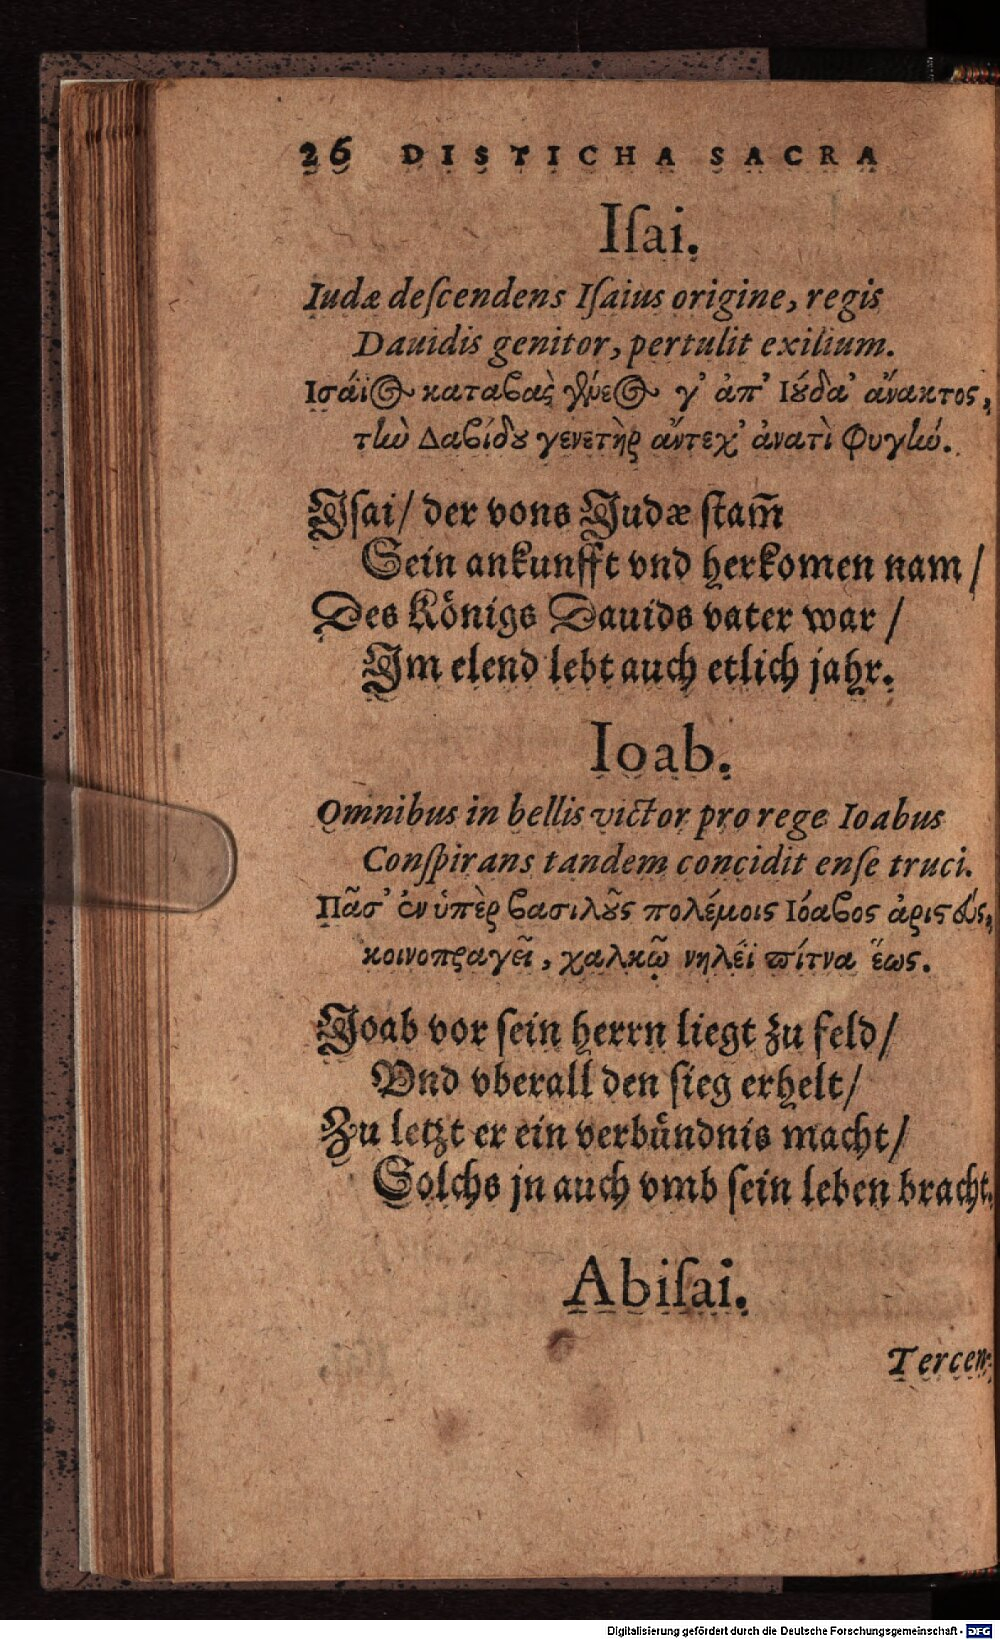 26 DISTICHA SACRA
Iſai.
Iudæ deſcendens Iſaius origine, regis
Dauidis genitor, pertulit exilium.
Ισάϊος καταβὰς γύεος γ' ἀπ' Ιούδα' ἄνακτος,
τὼ Δαβίδου γενετὴρ ἄντεχ' ἀνατὶ φυγὼ.
Iſai/ der vons Judæ ſtam̃
Sein ankunfft vnd herkomen nam/
Des Königs Dauids vater war/
Im elend lebt auch etlich jahr.
Ioab.
Omnibus in bellis victor pro rege Ioabus
Conſpirans tandem concidit enſe truci.
Πᾶσ' ἐν ὑπὲρ βασιλοῦς πολέμοις Ιόαβος ἀριστεύς,
κοινοπραγεῖ, χαλκῷ νηλέϊ πίτνα ἕως.
Joab vor ſein herrn liegt zu feld/
Vnd vberall den ſieg erhelt/
Zu letzt er ein verbündnis macht/
Solchs jn auch vmb ſein leben bracht.
Abiſai.
Tercen-
Digitalisierung gefördert durch die Deutsche Forschungsgemeinschaft - DFG